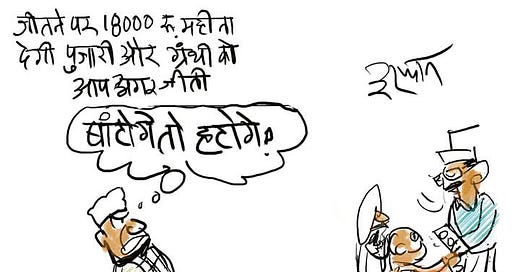 जीतने पर 18000 रु. महीना
देगी पुजारी और ग्रंथी को
आप अगर जीती
बांटोगे तो हटोगे!
इरफान